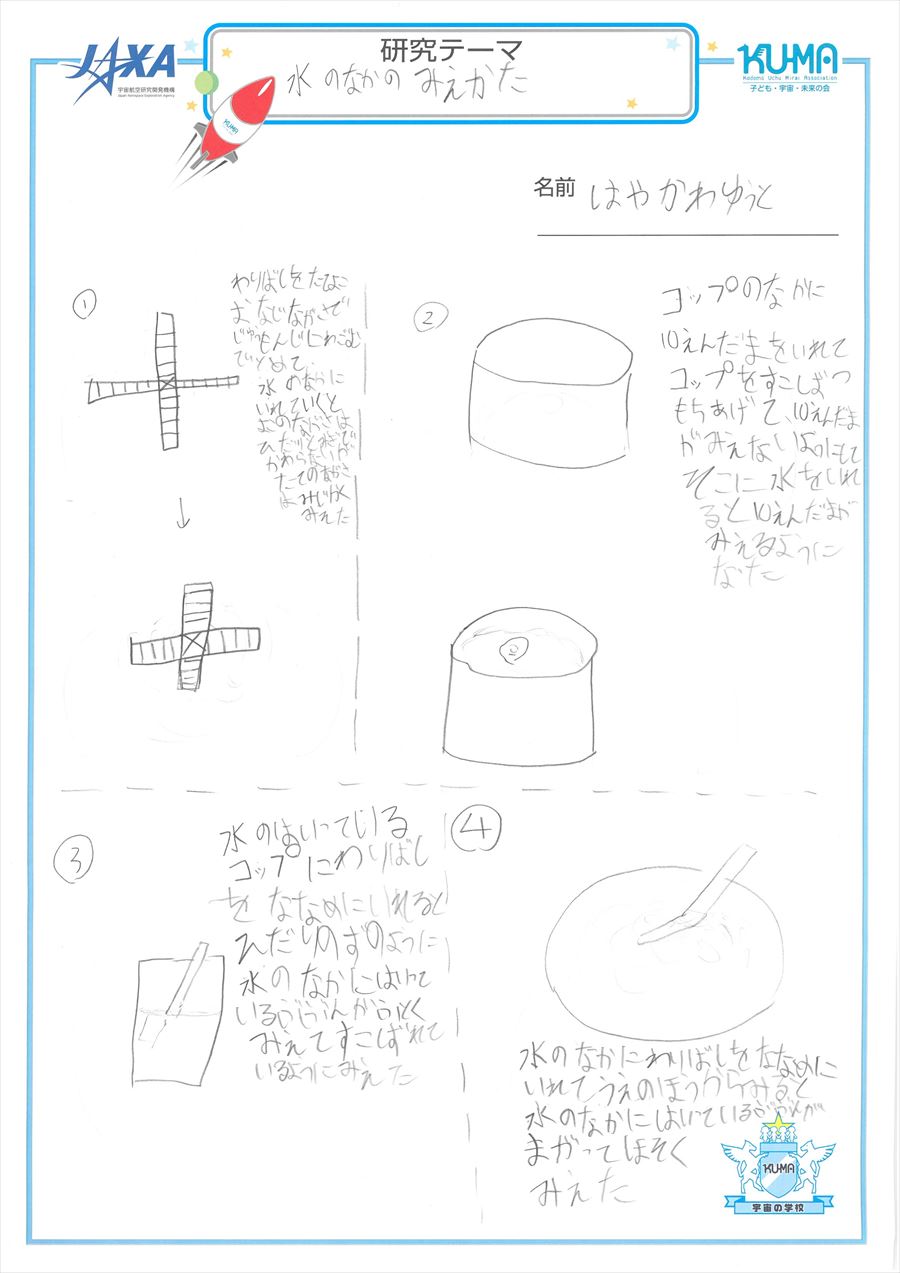 研究テーマ
水のなかのみえかた
JAXA
宇宙航空研究開発機構
Japan Aerospace Exploration Agency
KUMA
Kodomo Uchu Mirai Association
子ども・宇宙・未来の会
KUMA
名前 はやかわゆうと
①
わりばしをたてよこ
おなじながさで
じゅもんじにわごむ
でとめて、
水のなかに
いれていくと
よこのながさは
ひだりとみぎで
かわらないが
たてのながさ
はみじかく
みえた
②
コップのなかに
10えんだまをいれて
コップをすこしばつ
もちあげて、10えんだま
がみえないようにして
そこに水をいれ
ると10えんだまが
みえるように
なった
③
水のはいっている
コップにわりばし
をななめにいれると
ひだりのずのように
水のなかにはいって
いるぶぶんがふとく
みえてすこしずれて
いるようにみえた
④
水のなかにわりばしをななめに
いれてうえのほうからみると
水のなかにはいているぶぶんが
まがってほそく
みえた
KUMA
宇宙の学校